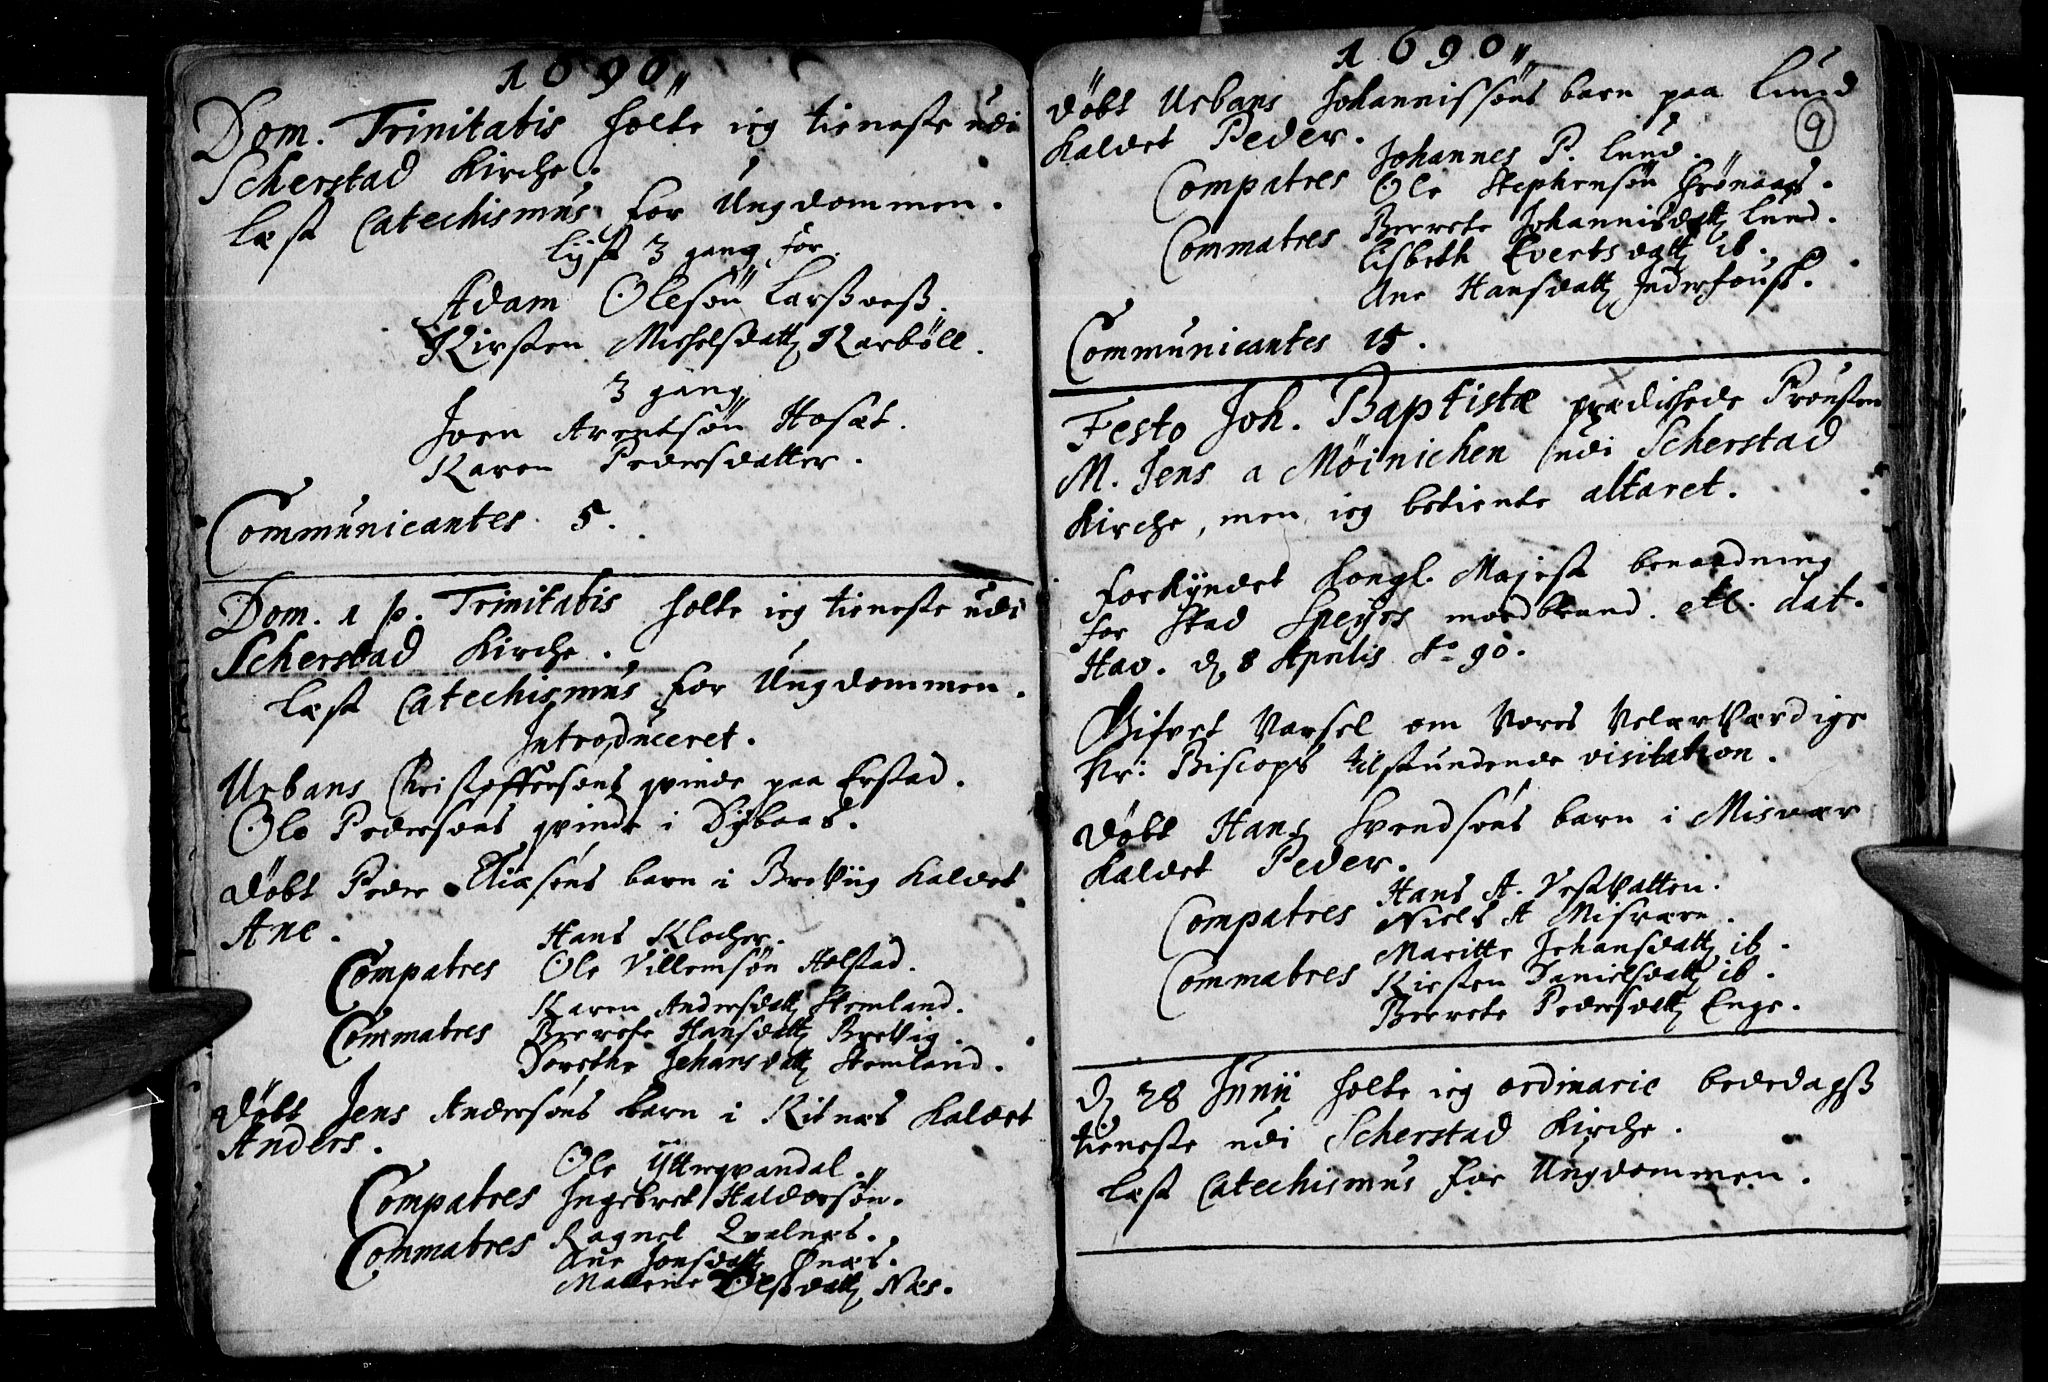 1690
Dom. Trinitatis holte ieg tieneste udi
Scherstad Kirche.
læst Catechismus for Ungdommen.
lyst 3 gang for
Adam Olesøn
Kirsten Michelsdatt Karbøll.
3 gang
Joen Arentsøn Hosæt.
Karen Pedersdatter.
Communicantes 5.
Dom. 1 p. Trinitatis holte ieg tieneste udi
Scherstad Kirche.
læst Catechismus for Ungdommen.
Introduceret.
Urbans Christoffersøns qvinde paa Erstad.
Ole Pedersøns qvinde i
døbt Peder Eliæsøns barn i Brevig kaldet
Ane.
Compatres Hans Klocher.
Ole Villemsøn Alstad.
Karen Andersdatt Stemland.
Commatres Beerete Hansdatt Brevig.
Dorethe Johansdatt Stemland.
døbt Jens Andersøns barn i Kitnæs kaldet
Anders.
Ole Ytterqvandal.
Compatres Ingebret Haldorsøn.
Commatres Ragnel Qvalnæs.
Ane Jonsdatt Ønæs.
Malene Olsdatt Næs.
1690
døbt Urbans Johannissøns barn paa Lund
9
kaldet Peder.
Johannes P. Lund.
Compatres Ole Stephensøn
Commatres Beerete Johannisdatt Lund.
Lisbeth Evertsdatt ib.
Ane Hansdatt
Communicantes 15.
Festo Joh. Baptistæ prædichede Prousten
M. Jens a Møinichen udi Scherstad
Kirche, men ieg betiente altaret.
Forkyndet Kongl. Majest benaadning
for Stad Speyrs mordbrand. etc. dat.
Hav. d 8 Aprilis Ao 90.
Gifvet Varsel om Vores VelærVærdige
Hr: Biscops tilstundende visitation.
døbt Hans Svendsøns barn i Misvær
kaldet Peder.
Hans A. Vestvatten.
Compatres Niels A Misvære.
Maritte Johansdatt ib.
Commatres Kirsten Danielsdatt ib.
Beerete Pedersdatt Enge.
d 28 Junii holte ieg ordinarie bededagß
tieneste udi Scherstad Kirche.
læst Catechismus for Ungdommen.